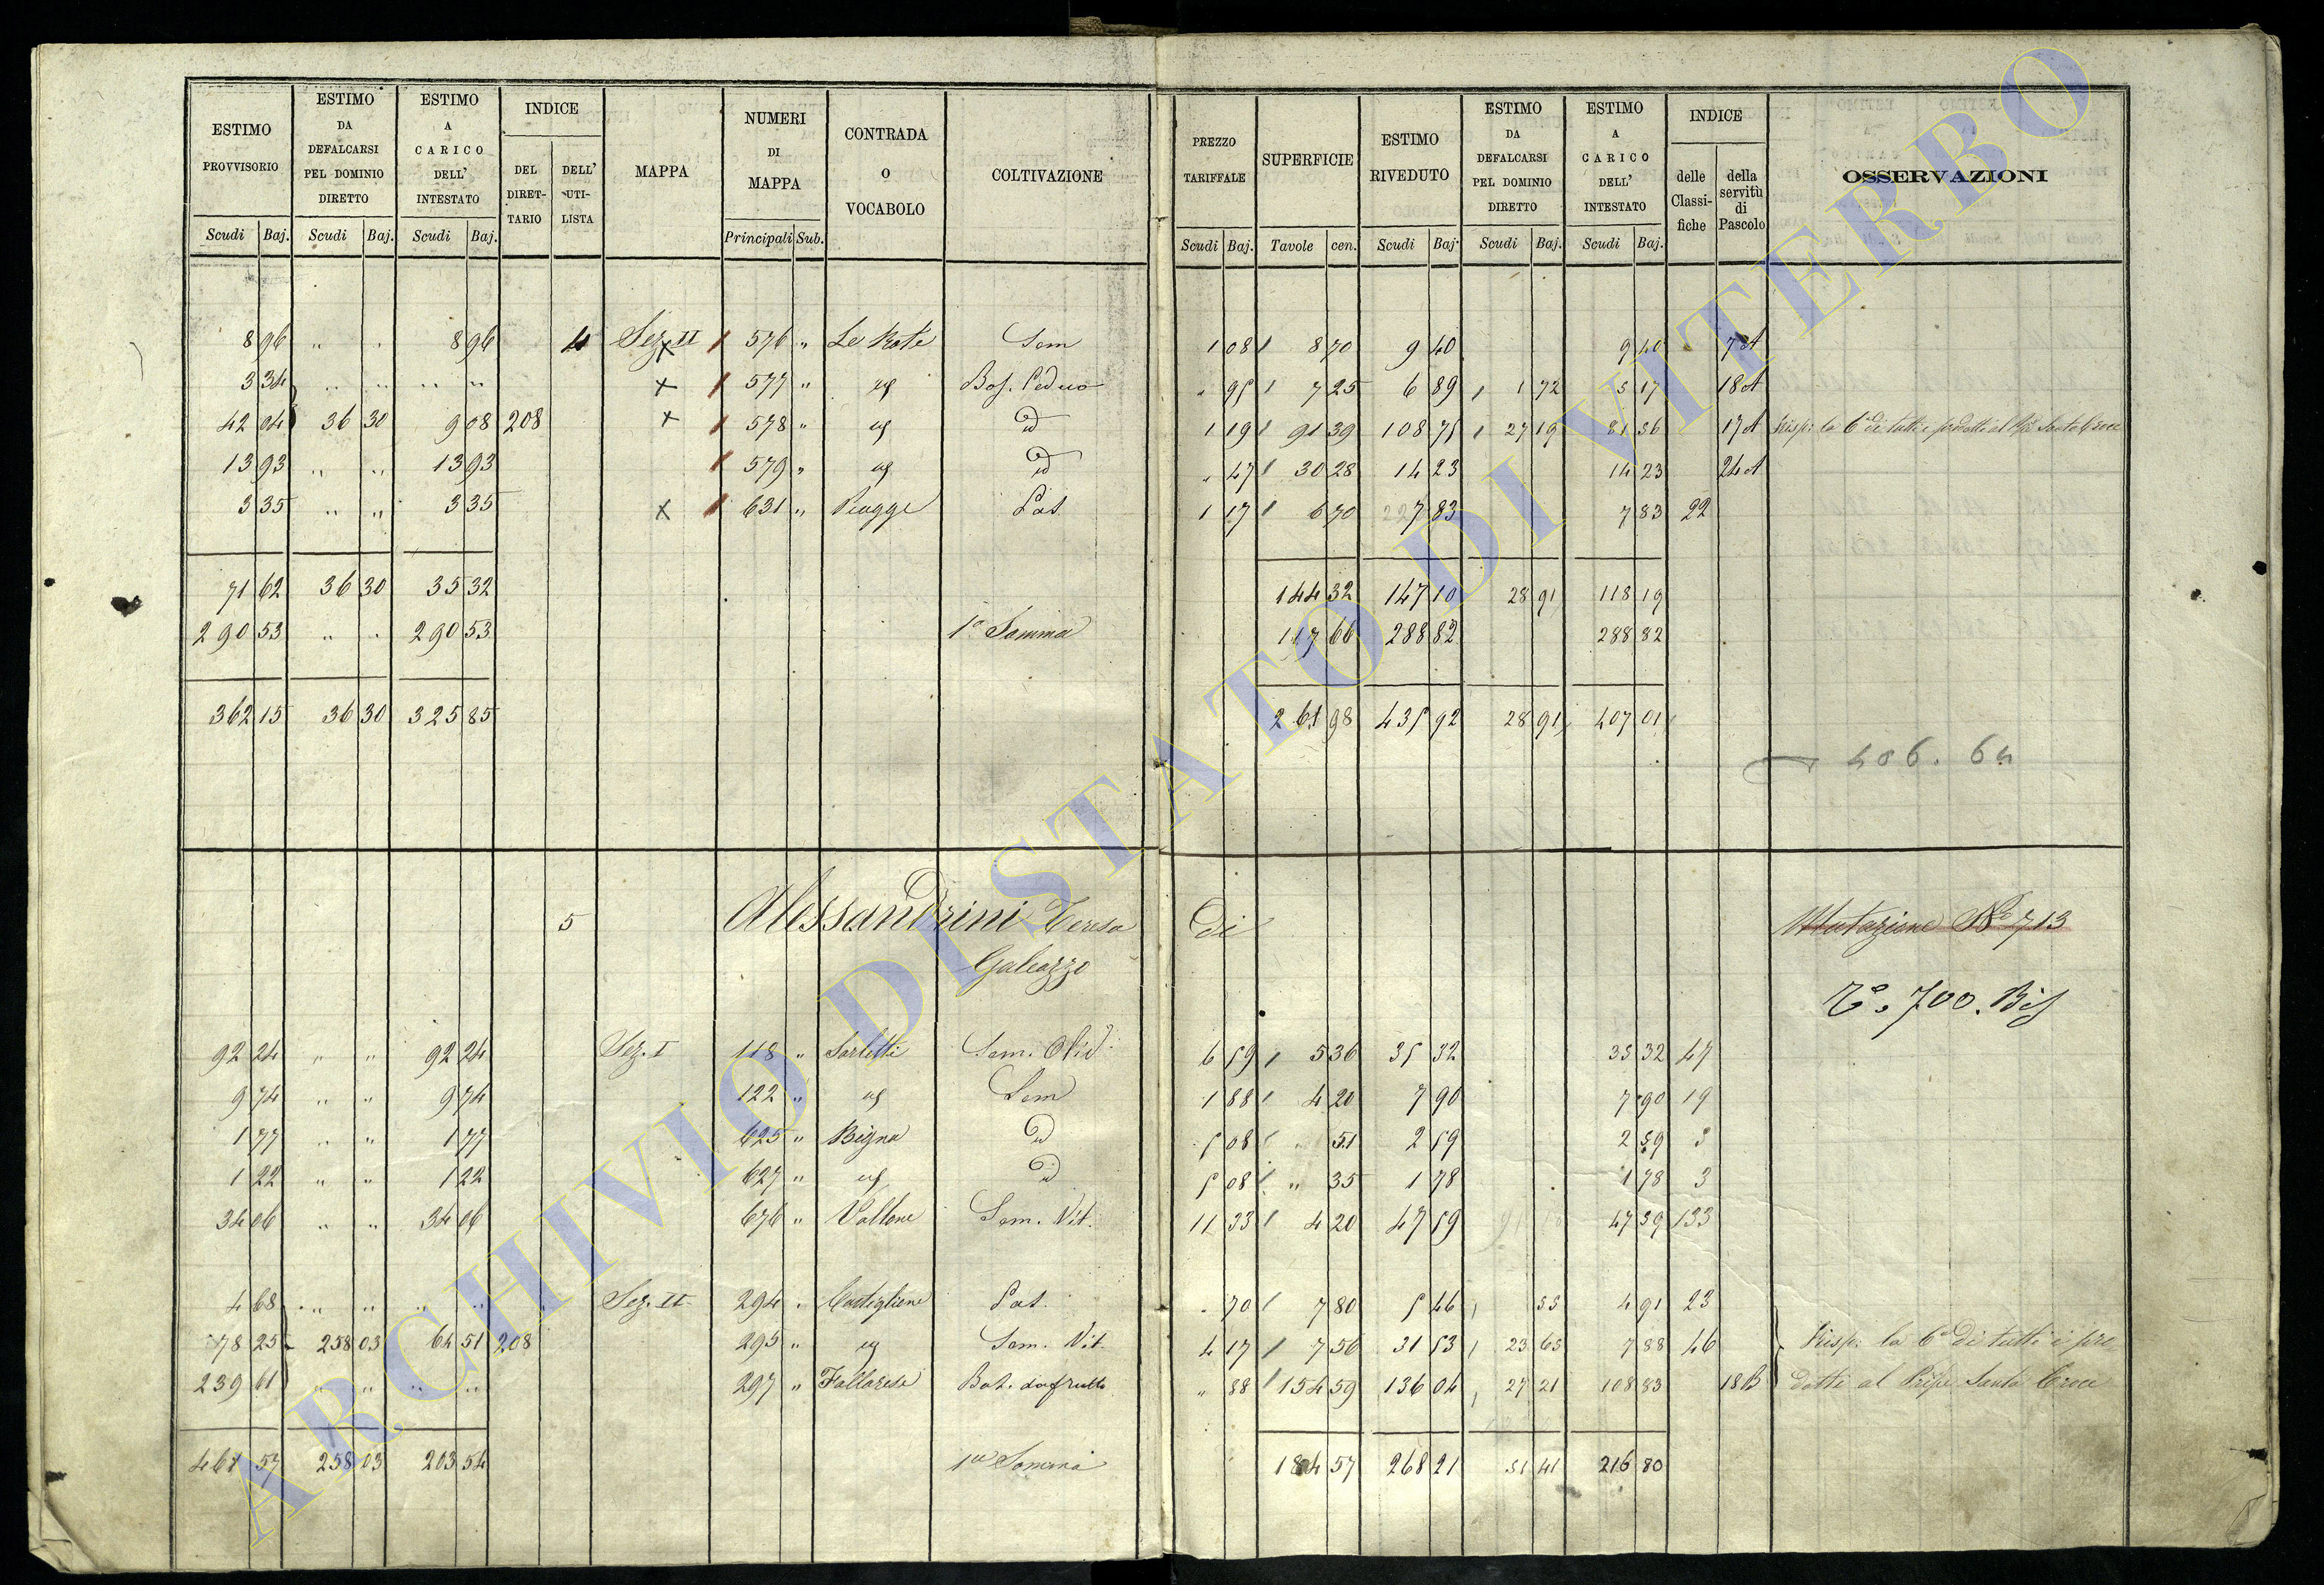 ESTIMO PROVVISORIO | ESTIMO DA DEFALCARSI PEL DOMINIO DIRETTO | ESTIMO A CARICO DELL' INTESTATO | INDICE DEL DIRETTARIO | DELL' UTILISTA | MAPPA | NUMERI DI MAPPA | CONTRADA O VOCABOLO | COLTIVAZIONE | PREZZO TARIFFALE | SUPERFICIE | ESTIMO RIVEDUTO | ESTIMO DA DEFALCARSI PEL DOMINIO DIRETTO | ESTIMO A CARICO DELL' INTESTATO | INDICE delle Classifiche | della servitù di Pascolo | OSSERVAZIONI
Scudi Baj. | Scudi Baj. | Scudi Baj. | Principali Sub. | Scudi Baj. | Tavole cen. | Scudi Baj. | Scudi Baj. | Scudi Baj.
8 96 " " 8 96 4 Sez. II 576 " Le Rote Sem 1 08 8 70 9 40 9 40 7 A
3 34 " " " " 577 " id Bos. Ceduo " 95 7 25 6 89 1 72 5 17 18 A
42 04 36 30 9 08 208 578 " id id 1 19 91 39 108 75 27 19 81 56 17 A Risp: la 6a di tutti i prodotti al Santa Croce
13 93 " " 13 93 579 " id id " 47 30 28 14 23 14 23 24 A
3 35 " " 3 35 631 " Piagge Pas 1 17 6 70 7 83 7 83 22
71 62 36 30 35 32 144 32 147 10 28 91 118 19
290 53 " " 290 53 1a Somma 117 66 288 82 288 82
362 15 36 30 325 85 261 98 435 92 28 91 407 01
406. 64
5 Alessandrini Teresa di Mutazione No 713
Galeazzo
To. 700. Bis
92 24 " " 92 24 Sez. I 118 " Sarletti Sem. Oliv. 6 59 5 36 35 32 35 32 47
9 74 " " 9 74 122 " id Sem 1 88 4 20 7 90 7 90 19
1 77 " " 1 77 625 " Bigna id 5 08 " 51 2 59 2 59 3
1 22 " " 1 22 627 " id id 5 08 " 35 1 78 1 78 3
34 06 " " 34 06 676 " Vallone Sem. Vit. 11 33 4 20 47 59 47 59 133
4 68 " " " " Sez. II 294 " Castiglione Pas. " 70 7 80 5 46 55 4 91 23
78 25 258 03 64 51 208 295 " id Sem. Vit. 4 17 7 56 31 53 23 65 7 88 46 Risp: la 6a di tutti i pro
239 61 " " " " 297 " Fallarese Bos. da frutto " 88 154 59 136 04 27 21 108 83 18 B dotti al Pripe Santa Croce
461 57 258 03 203 54 1a Somma 184 57 268 21 51 41 216 80
ARCHIVIO DI STATO DI VITERBO